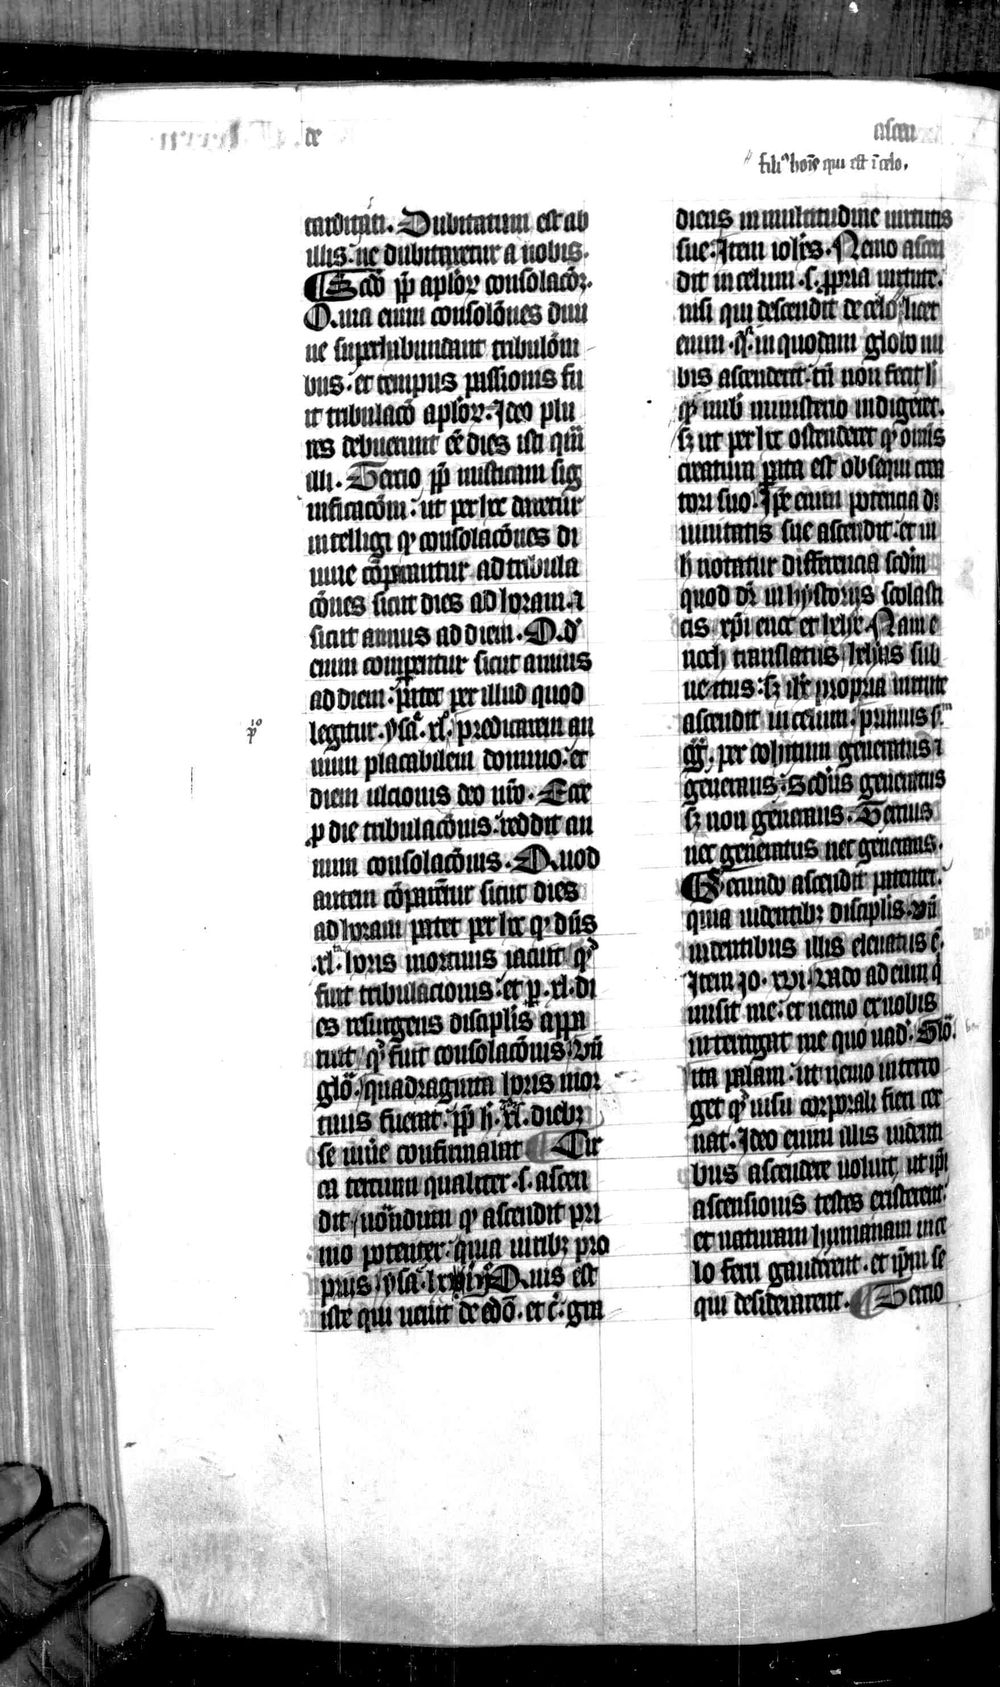 de
ascen
filiꝰ hoıs̄ qui est ī celo.
tarditati. Dubitatum est ab
illis: ne dubitaretur a nobis.
Scd̄o ꝓp̄ aplōꝝ consolacōeꝫ.
Quia enim consolōnes diui
ne suꝑhabundant tribulōni
bus. et tempus passionis fu
it tribulacō aplōꝝ. Ideo plu
res debuerunt ēe dies isti qm̄
illi. Tercio ꝓp̄ misticam sig
nificacōm: ut per hec daretur
intelligi ꝙ consolacōnes di
uine cōparantur ad tribula
cōnes sicut dies ad horam. ⁊
sicut annus ad diem. Q. d̓
enim comparentur sicut annus
ad diem: patet per illud quod
legitur. ysa̓. xlͦ. predicarem an
num placabilem domino. et
diem ulcionis deo nr̄o. Ecce
ꝓ die tribulacōnis: reddit an
num consolacōnis. Quod
autem cōparentur sicut dies
ad horam patet per hec ꝙ dn̄s
.xl. horis mortuus iacuit qͦ
fuit tribulacionis: et ꝑ .xl. di
es resurgens discipl̄is appa
ruit qͦ fuit consolacōnis. Vn̄
glō. quadraginta horis mor
tuus fuerat. ꝓp̄ h̄. xl. diebꝫ
se uiue̓ confirmabat Cir
ca tercium qualiter .s. ascen
dit. nōndum ꝙ ascendit pri
mo potenter. quia uiribꝫ pro
priis ysa̓. Quis est
iste qui uenit de edō. et c̓. gra
diens in multitudine uirtutis
sue. Item ioh̄is. Nemo ascen
dit in celum .s. ꝓpria uirtute.
nisi qui descendit de celo licet
enim. in quodam globo nu
bis ascenderit. tn̄ non fecit h̄
ꝙ nub̓ ministerio indigeret.
sꝫ ut per hec ostenderet ꝙ omīs
creatura parata est obsequi crea
tori suo. Ipse enim potencia di
uinitatis sue ascendit. et in
h̄ notatur differencia scd̄m
quod dr̄ in hystoriis scolasti
cis xp̄i enoc et helye. Nam e
noch translatus helyas sub
uectus: sꝫ propria uirtute
ascendit in celum. primus sm̄
gg̓. per cohitum generatus ⁊
generans. Scd̄us generatus
sꝫ non generans. Tercius
nec generatus nec generans.
Secundo ascendit patenter.
quia uidentibꝫ discipl̄is. vn̄
uidentibus illis eleuatus ē.
Item Jo. xvi. Vado ad eum q̓
misit me. et nemo ex uobis
interrogat me quo uad̓. Glō.
ita palam: ut nemo interro
get qͦ uisu corporali fieri cer
nat. Ideo enim illis uidenti
bus ascendere uoluit, ut ip̄i
ascensionis testes existerent:
et naturam humanam in ce
lo ferri gauderent. et ip̄m se
qui desiderarent. Tercio
pͥo